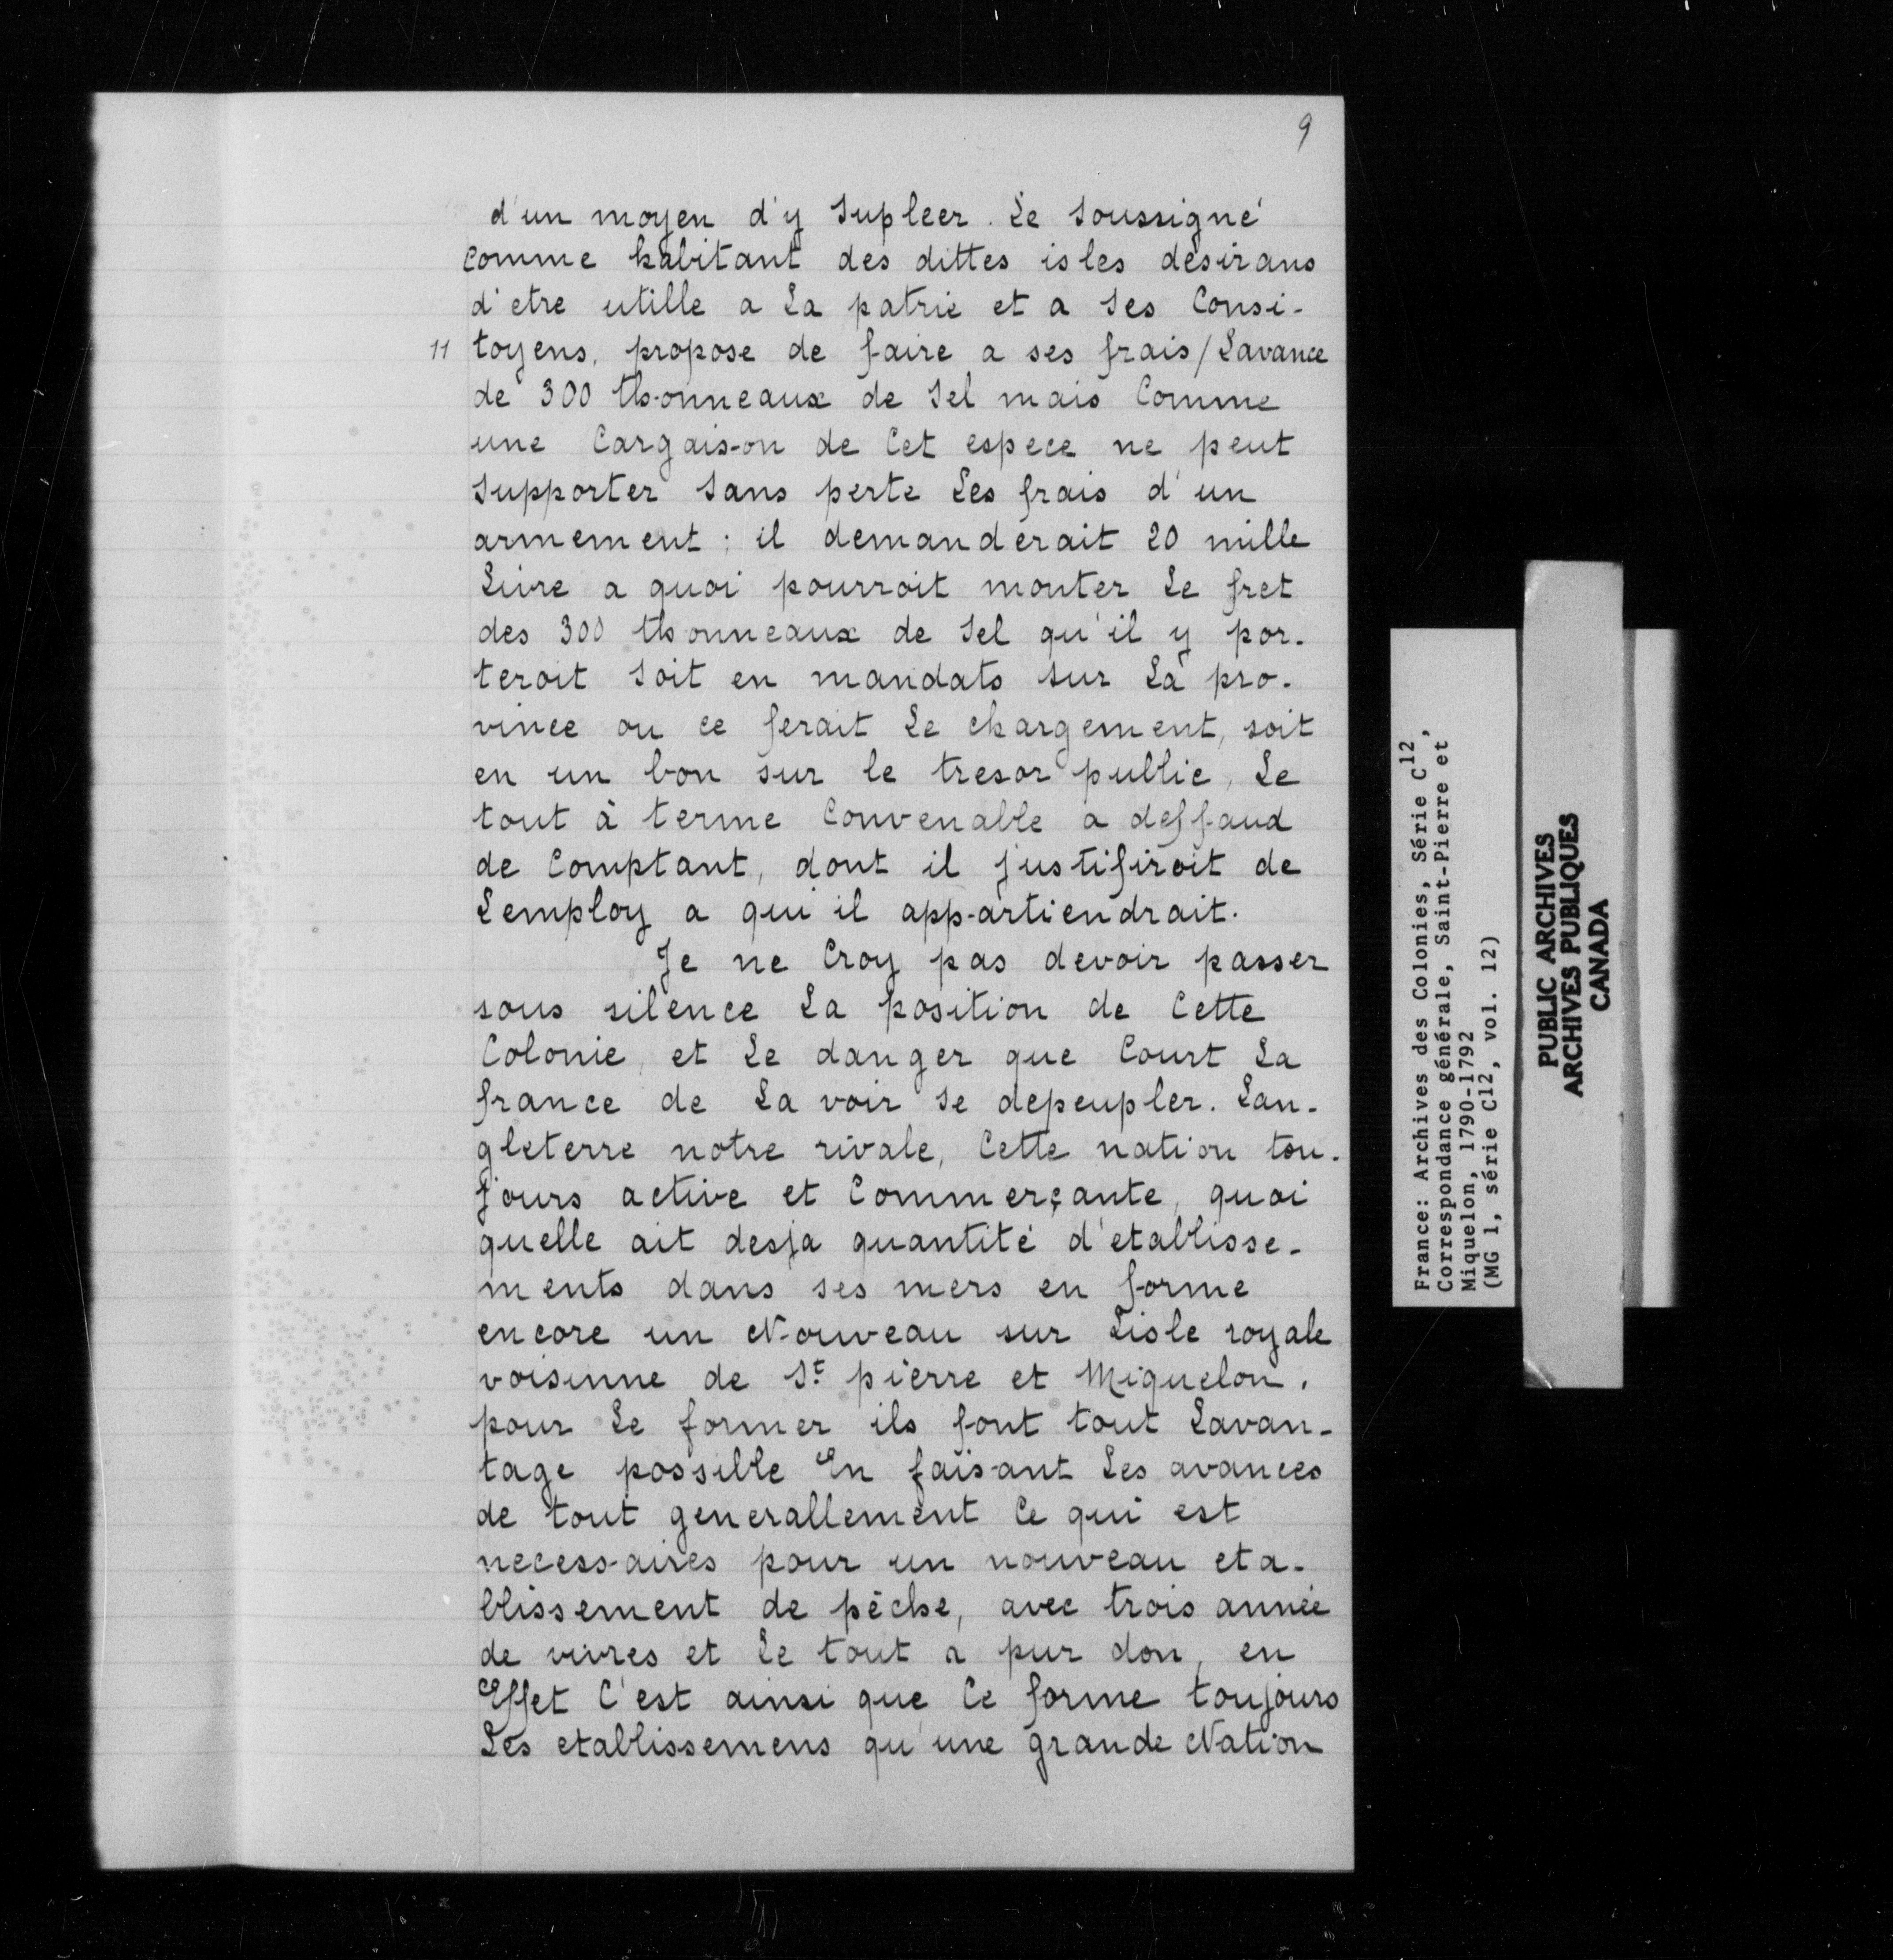 9
d'un moyen d'y Supleer. Le Soussigné
Comme habitant des dittes isles désirans
d'etre utille a La patrie et a Ses Consi-
11 toyens, propose de faire a ses frais / Lavance
de 300 thonneaux de Sel mais Comme
une Cargaison de Cet espece ne peut
Supporter Sans perte Les frais d'un
armement : il demanderait 20 mille
Livre a quoi pourroit monter Le fret
des 300 thonneaux de Sel qu'il y por-
teroit Soit en mandats sur La pro-
vince ou ce ferait Le chargement, soit
en un bon sur le tresor public, Le
tout à terme Convenable a deffaud
de Comptant, dont il justifiroit de
Lemploy a qui il appartiendrait.
Je ne Croy pas devoir passer
sous silence La position de Cette
Colonie, et Le danger que Court La
france de La voir se depeupler. Lan-
gleterre notre rivale, Cette nation tou-
jours active et Commerçante, quoi
quelle ait desja quantité d'etablisse-
ments dans ses mers en forme
encore un Nouveau sur Lisle royale
voisinne de St pierre et Miquelon.
pour Le former ils font tout Lavan-
tage possible En faisant Les avances
de tout generallement Ce qui est
necessaires pour un nouveau eta-
blissement de pêche, avec trois année
de vivres et Le tout a pur don, en
Effet C'est ainsi que Ce forme toujours
Les etablissemens qu'une grande Nation
France: Archives des Colonies, Série C12,
Correspondance générale, Saint-Pierre et
Miquelon, 1790-1792
(MG 1, série C12, vol. 12)
PUBLIC ARCHIVES
ARCHIVES PUBLIQUES
CANADA